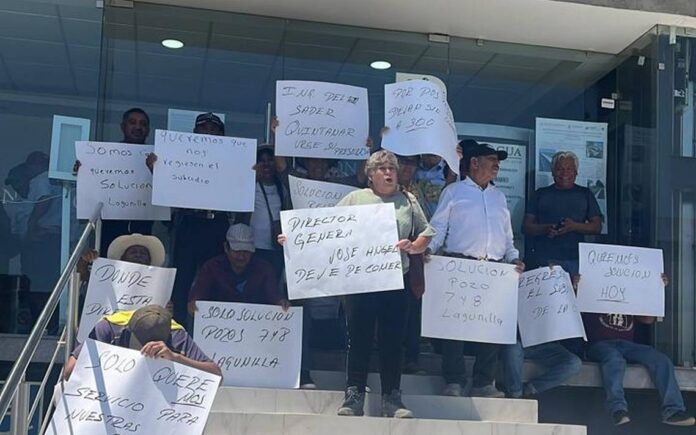 SOMOS
queremos
Solucion
Lagunilla
queremos que
nos
regresen el
subsidio
ING. DEL
SADER
QUINTANAR
URGE SU PRESENCIA
POR POS
DEJAN SUR
A 300
SOLUCION
DIRECTOR
GENERA
JOSE ANGEL
DEVE DE COMER
SOLUCION
POZO
7 Y 8
Lagunilla
REGRES
EL SUB
DE LA
QUREMOS
SOLUCION
HOY
DONDE
ESTA
DIR
SOLO SOLUCION
POZOS 7 Y 8
LAGUNILLA
SOLO QUERE
MOS
SERVICIO PARA
NUESTRAS
AGUA